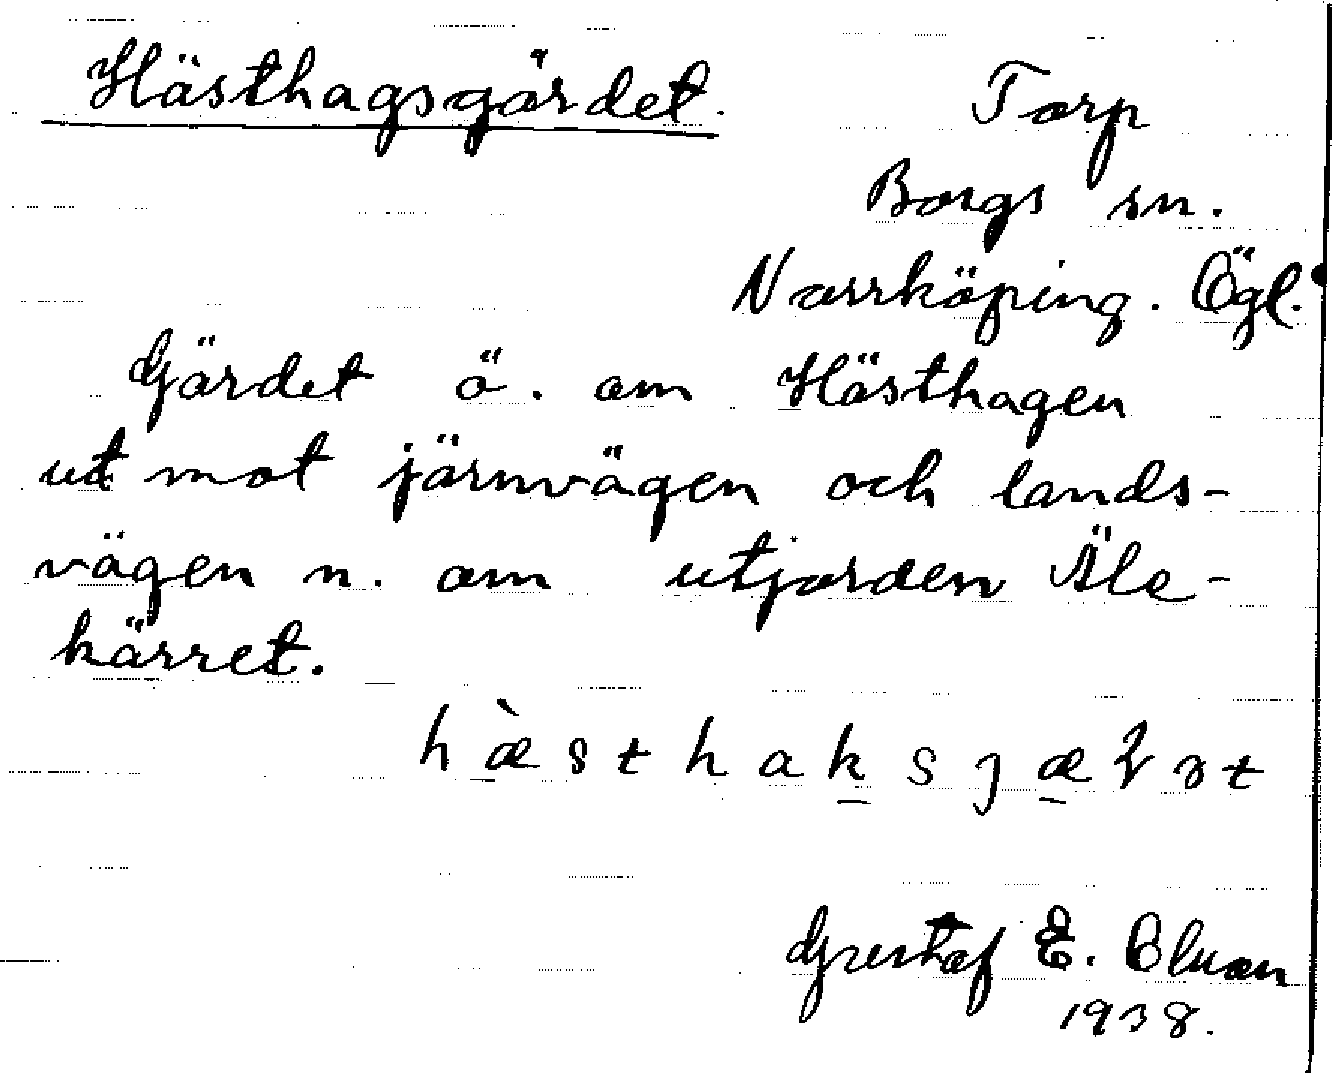 Hästhagsgärdet. Torp
Borgs sn.
Norrköping. Ögl.
Gärdet ö. om Hästhagen
ut mot järnvägen och lands-
vägen n. om utjorden Åle-
kärret.
Gustaf E.
1938.